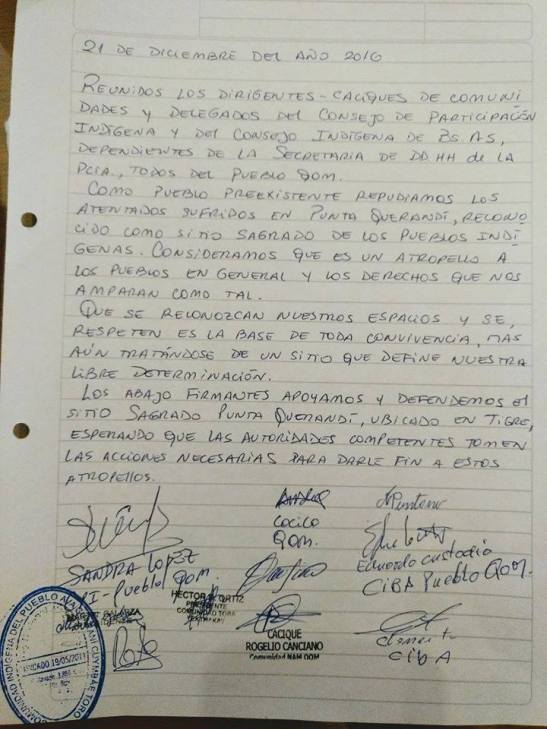 21 DE DICIEMBRE DEL AÑO 2016
REUNIDOS LOS DIRIGENTES - CACIQUES DE COMUNI
DADES Y DELEGADOS DEL CONSEJO DE PARTICIPACIÓN
INDÍGENA Y DEL CONSEJO INDÍGENA DE BS. AS,
DEPENDIENTES DE LA SECRETARIA DE DD HH de LA
PCIA., TODOS DEL PUEBLO QOM.
COMO PUEBLO PREEXISTENTE REPUDIAMOS LOS
ATENTADOS SUFRIDOS EN PUNTA QUERANDÍ, RECONO
CIDO COMO SITIO SAGRADO DE LOS PUEBLOS INDÍ
GENAS. CONSIDERAMOS QUE ES UN ATROPELLO A
LOS PUEBLOS EN GENERAL Y LOS DERECHOS QUE NOS
AMPARAN COMO TAL.
QUE SE RECONOZCAN NUESTROS ESPACIOS Y SE,
RESPETEN ES LA BASE DE TODA CONVIVENCIA, MAS
AÚN TRATÁNDOSE DE UN SITIO QUE DEFINE NUESTRA
LIBRE DETERMINACIÓN.
LOS ABAJO FIRMANTES APOYAMOS Y DEFENDEMOS el
SITIO SAGRADO PUNTA QUERANDÍ, UBICADO EN TIGRE,
ESPERANDO QUE LAS AUTORIDADES COMPETENTES TOMEN
LAS ACCIONES NECESARIAS PARA DARLE FIN A ESTOS
ATROPELLOS.
Cacico
QOM.
SANDRA LOPEZ
CPI - Pueblo QOM.
Eduardo custodio
CIBA Pueblo QOM.
HECTOR ORTIZ
PRESIDENTE
COMUNIDAD TOBA
CACIQUE
ROGELIO CANCIANO
Comunidad NAM QOM
Clemente
CIBA
COMUNIDAD INDÍGENA DEL PUEBLO
CUYMBAE TORO
19/05/2011